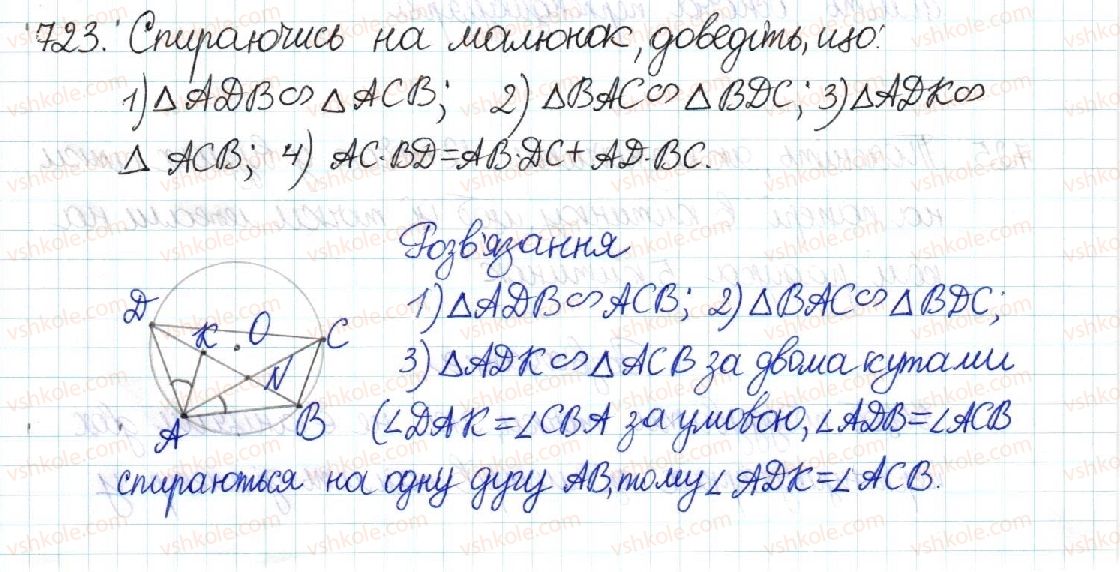 723. Спираючись на малюнок, доведіть, що:
1) △ ADB ∽ △ ACB; 2) △BAC ∽ △BDC; 3) △ADK ∽
△ ACB; 4) AC·BD = AB·DC + AD·BC.
Розв'язання
1) △ADB ∽ ACB; 2) △BAC ∽ △BDC;
3) △ADK ∽ △ACB за двома кутами
(∠DAK = ∠CBA за умовою, ∠ADB = ∠ACB
спираються на одну дугу AB, тому ∠ADK = ∠ACB.
D
K
O
C
N
A
B
vshkole.com